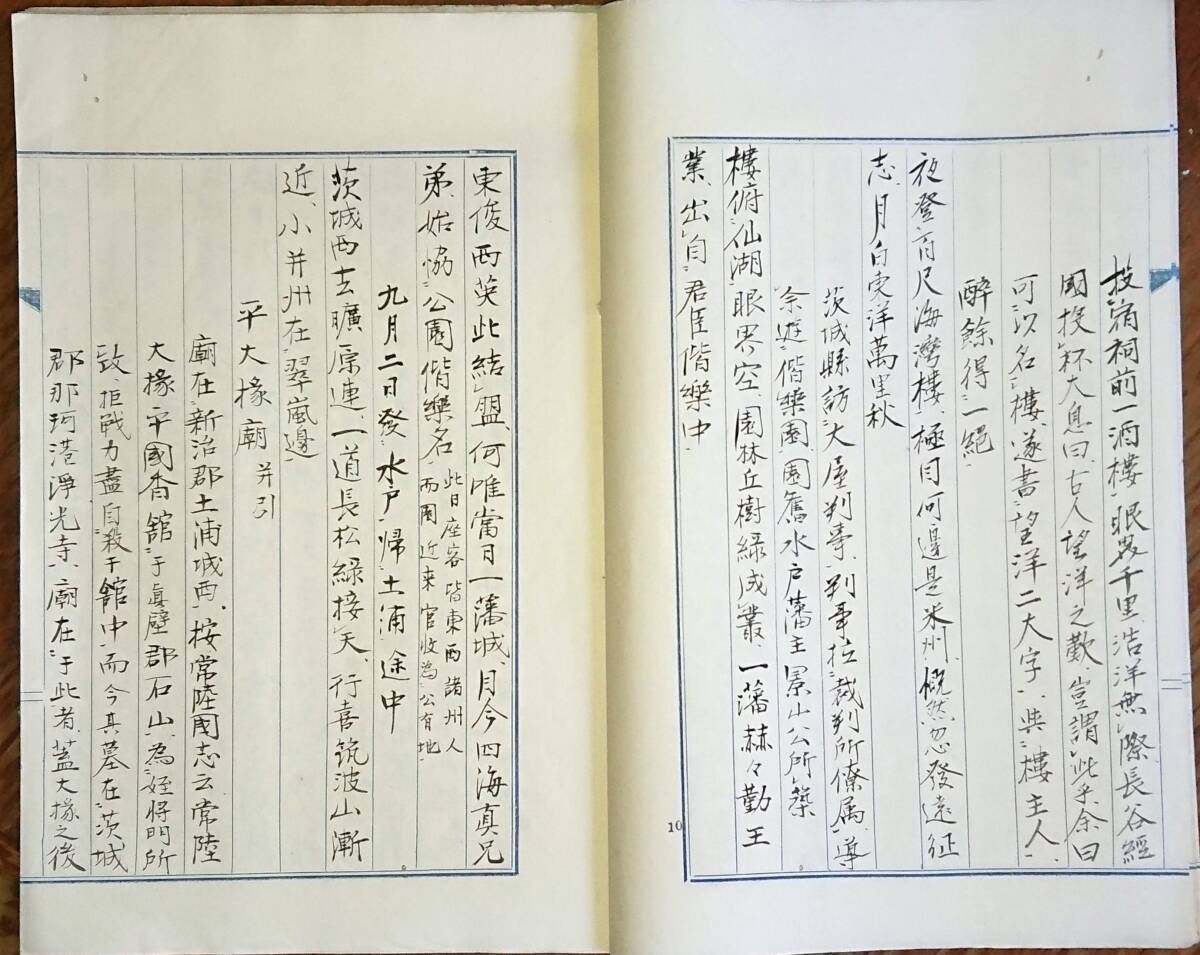 投宿祠前一酒樓、眼界千里、浩洋無際長谷經
國投杯大息曰、古人望洋之歎、豈謂此乎、余曰
可以名樓、遂書望洋二大字、與樓主人、
醉餘得一絕
夜登百尺海灣樓、極目何邊是米州、慨然忽發遠征
志、月白東洋萬里秋
茨城縣訪大屋判事、判事拉裁判所僚属、導
余遊偕樂園、園舊水戶藩主景山公所築
樓俯仙湖眼界空、園林丘樹綠成叢、一藩赫々勤王
業、出自君臣偕樂中
10
東俊西英此結盟、何唯當日一藩城、月今四海真兄
弟、始協公園偕樂名、此日座客皆東西諸州人
而園近来官收為公有地
九月二日發水戶歸土浦途中
茨城西去曠原連、一道長松綠接天、行喜筑波山漸
近、小并州在翠嵐邊
平大掾廟 并引
廟在新治郡土浦城西、按常陸國志云常陸
大掾平國香舘于真壁郡石山、為姪將門所
攻、拒戰力盡自殺于舘中、而今其墓在茨城
郡那珂港淨光寺、廟在于此者、蓋大掾之後